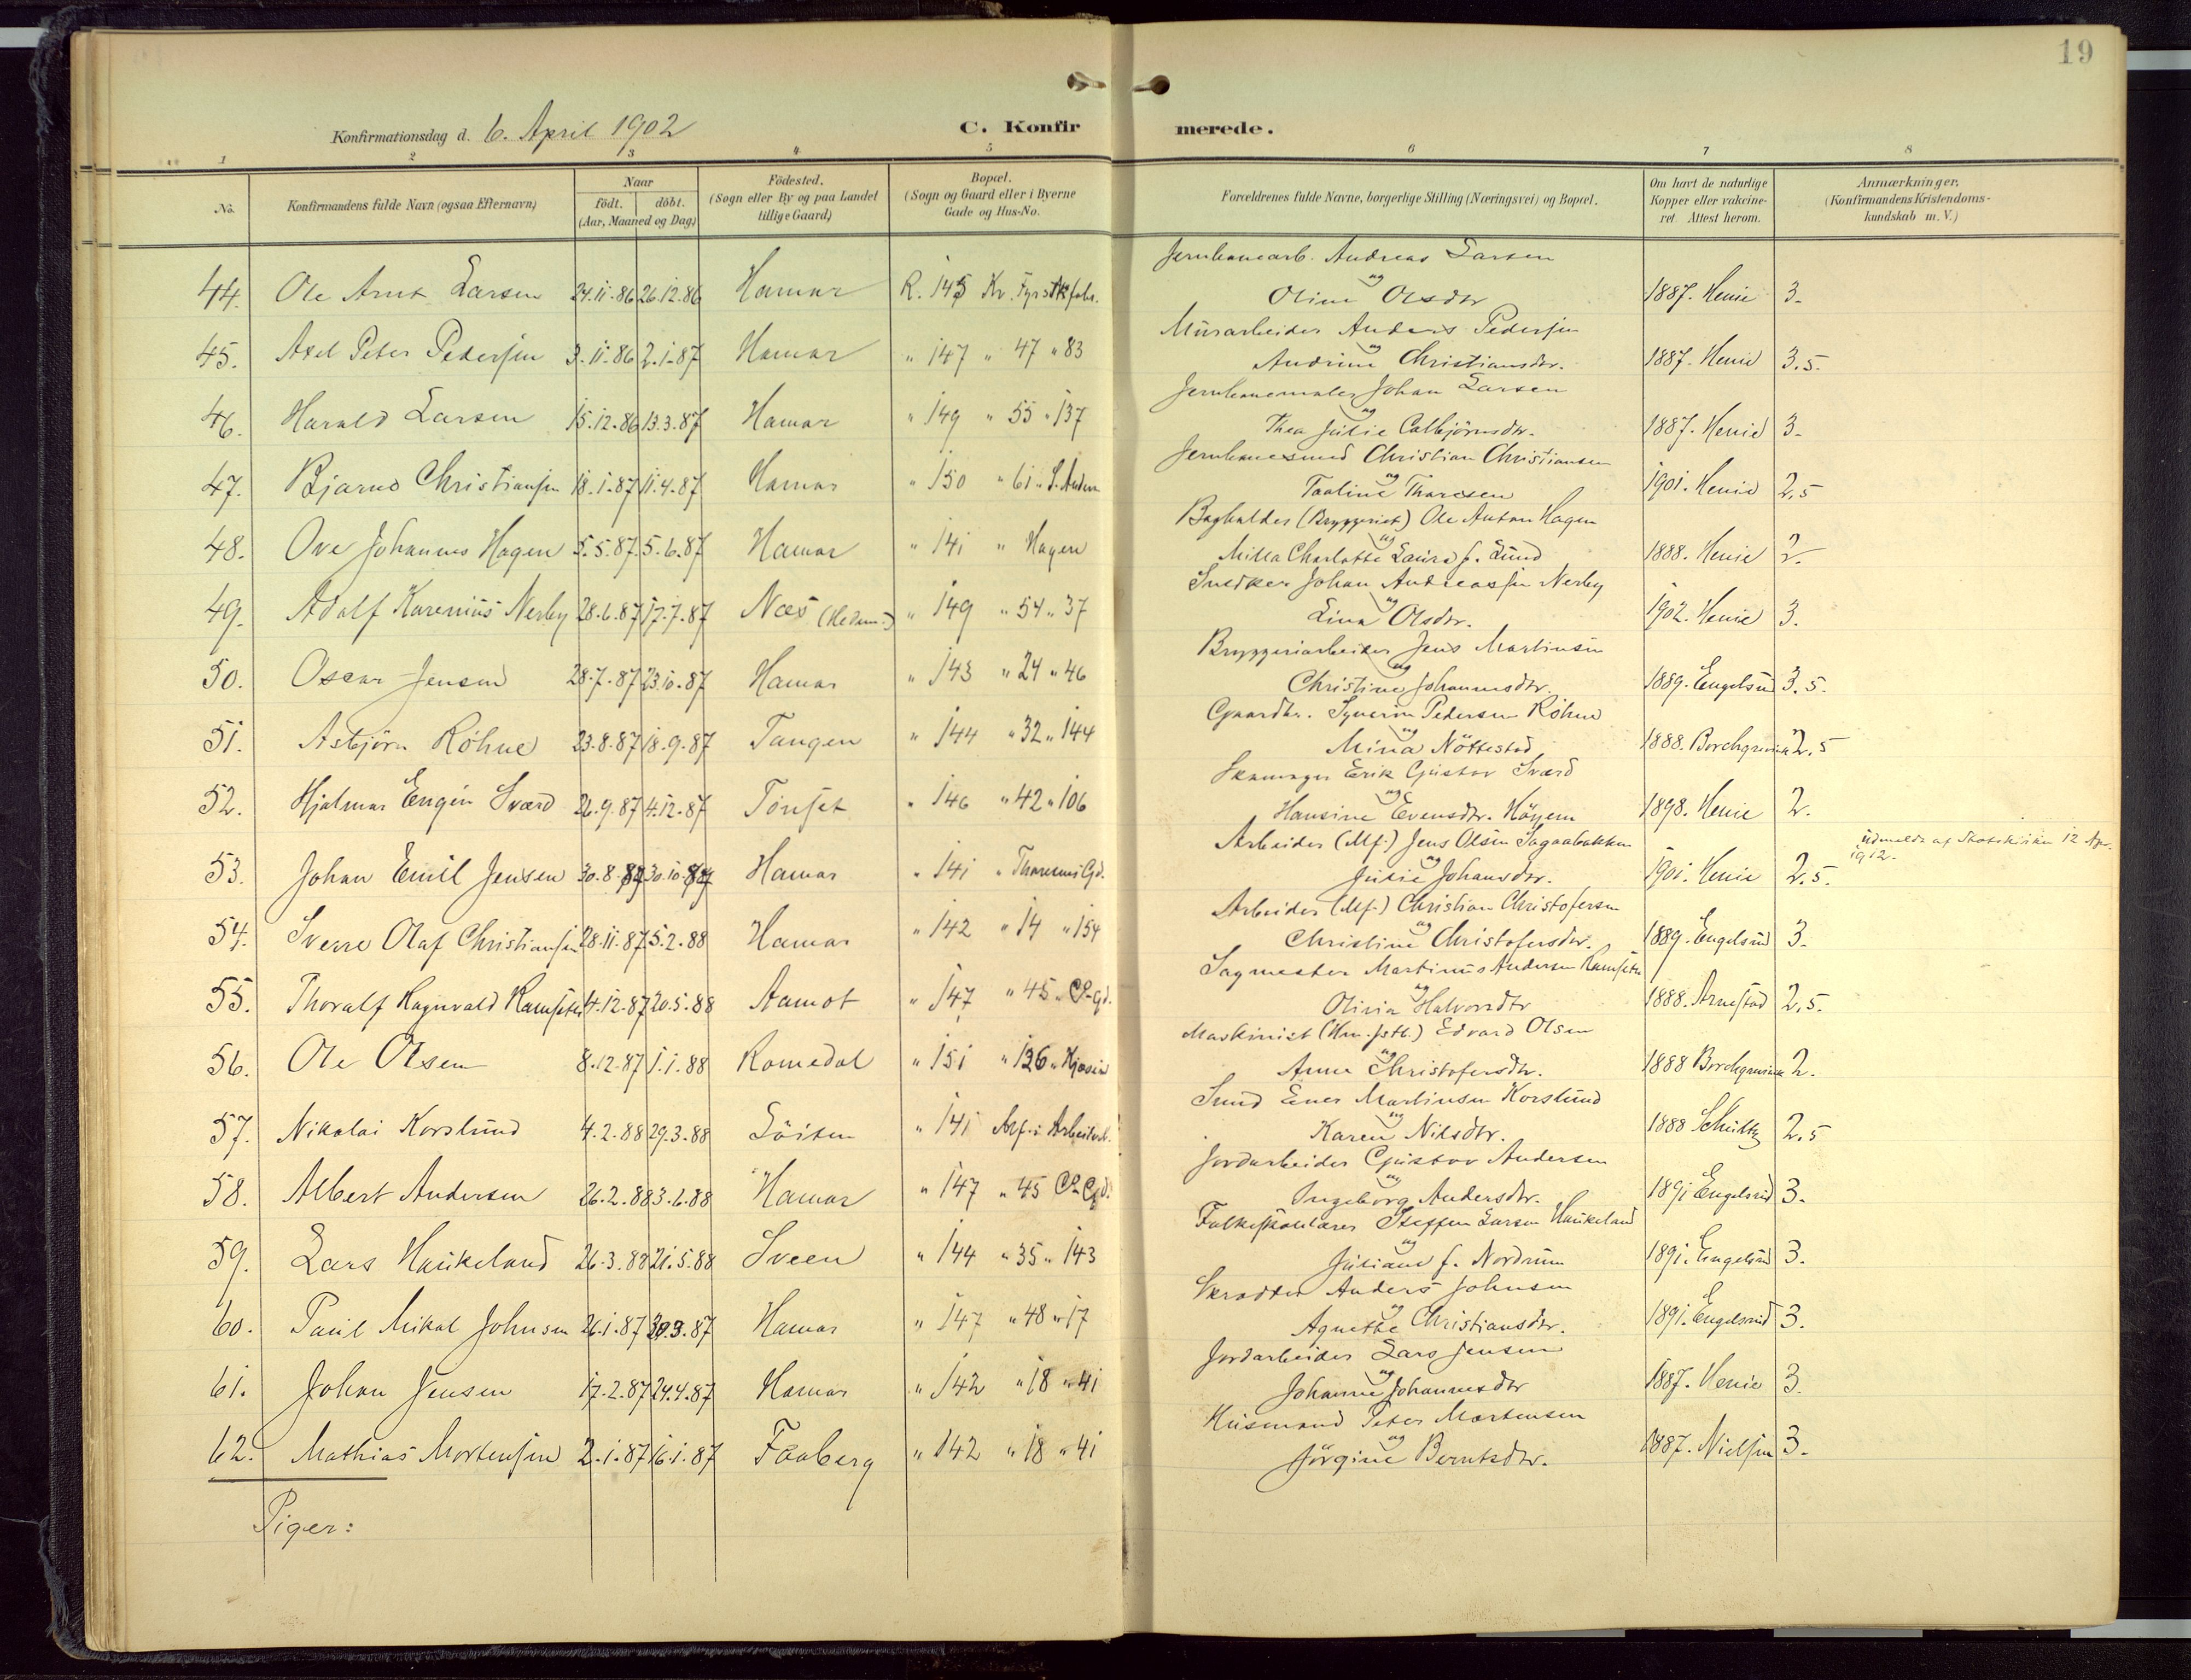 19
Konfirmationsdag d. 6. April 1902
C. Konfirmerede.
1 2 3 4 5 6 7 8
No.
Konfirmandens fulde Navn (ogsaa Efternavn)
Naar
födt. döbt.
(Aar, Maaned og Dag)
Födested.
(Sogn eller By og paa Landet
tillige Gaard)
Bopæl.
(Sogn og Gaard eller i Byerne
Gade og Hus-No.
Forældrenes fulde Navne, borgerlige Stilling (Næringsvei) og Bopæl.
Om havt de naturlige
Kopper eller vakcine-
ret. Attest herom.
Anmærkninger,
(Konfirmandens Kristendoms-
kundskab m. V.)
Jernbanearb. Andreas Larsen
44. Ole Arnt Larsen 24.11.86 26.12.86 Hamar R. 145 Kr. og Oline Olsdtr 1887. Henie 3.
Murarbeider Anders Pedersen
45. Axel Peter Pedersen 3.11.86 2.1.87 Hamar " 147 " 47 " 83 og Andrine Christiansdtr. 1887. Henie 3.5.
Jernbanemaler Johan Larsen
46. Harald Larsen 15.12.86 13.3.87 Hamar " 149 " 55 " 137 og Thea Julie Colbjörnsdtr. 1887. Henie 3.
Jernbanesmed Christian Christiansen
47. Bjarne Christiansen 18.1.87 11.4.87 Hamar " 150 " 61 " og Paoline Thoresen 1901. Henie 2,5
Boghalder (Bryggeriet) Ole Anton Hagen
48. Ove Johannes Hagen 5.5.87. 5.6.87 Hamar " 141 " Hagen og Milla Charlotte Laura f. Lund 1888. Henie 2.
Snedker Johan Andreassen Nerby
49. Adolf Karenius Nerby 28.6.87 17.7.87 Næs (Hedem.) " 149 " 54 " 37 og Lina Olsdtr. 1902. Henie 3.
Bryggeriarbeider Jens Martinsen
50. Oscar Jensen 28.7.87 23.10.87 Hamar " 143 " 24 " 46 og Christine Johannesdtr. 1889. Engelsrud 3.5.
Gaardbr. Syverin Pedersen Röhne
51. Asbjörn Röhne 23.8.87 18.9.87 Tangen " 144 " 32 " 144 og Mina Nöttestad 1888. Borchgrevink 2.5
Skomager Erik Gustav Sværd
52. Hjalmar Eugen Sværd 26.9.87 4.12.87 Tönset " 146 " 42 " 106 og Hansine Evensdtr. Höyem 1898. Henie 2.
Arbeider (Mf.) Jens Olsen Sagaabakken
53. Johan Emil Jensen 30.8.87 30.10.87 Hamar " 141 " og Julie Johansdtr. 1901. Henie 2.5. udmeldt af Statskirken 12 Apr. 1912.
Arbeider (Mf.) Christian Christofersen
54. Sverre Olaf Christiansen 28.11.87 5.2.88 Hamar " 142 " 14 " 154 og Christine Christofersdtr. 1889. Engelsrud 3.
Sagmester Martinus Andersen Ramseth
55. Thoralf Ragnvald Ramseth 4.12.87 20.5.88 Aamot " 147 " 45 og Olivia Halvorsdtr 1888. Arnestad 2,5.
Maskinist Edvard Olsen
56. Ole Olsen 8.12.87 1.1.88 Romedal " 151 " 136 " og Anne Christofersdtr. 1888 Borchgrevink 2.
Smed Ener Martinsen Korslund
57. Nikolai Korslund 4.2.88 29.3.88 Löiten " 141 og Karen Nilsdtr. 1888 Schultz 2,5
Jordarbeider Gustav Andersen
58. Albert Andersen 26.2.88 3.6.88 Hamar " 147 " 45 og Ingeborg Andersdtr. 1891 Engelsrud 3.
Folkeskolelærer Steffen Larsen Haukeland
59. Lars Haukeland 26.3.88 21.5.88 Sveen " 144 " 35 " 143 og Juliane f. Nordrum 1891. Engelsrud 3.
Skrædder Anders Johnsen
60. Paul Mikal Johnsen 26.1.87 Hamar " 147 " 48 " 17 og Agnethe Christiansdtr. 1891. Engelsrud 3.
Jordarbeider Lars Jensen
61. Johan Jensen 17.2.87 24.4.87 Hamar " 142 " 18 " 41 og Johanne Johannesdtr 1887. Henie 3.
Husmand Peter Mortensen
62. Mathias Mortensen 2.1.87 16.1.87 Faaberg " 142 " 18 " 41 og Jörgine Berntsdtr. 1887. Nielsen 3.
Piger: